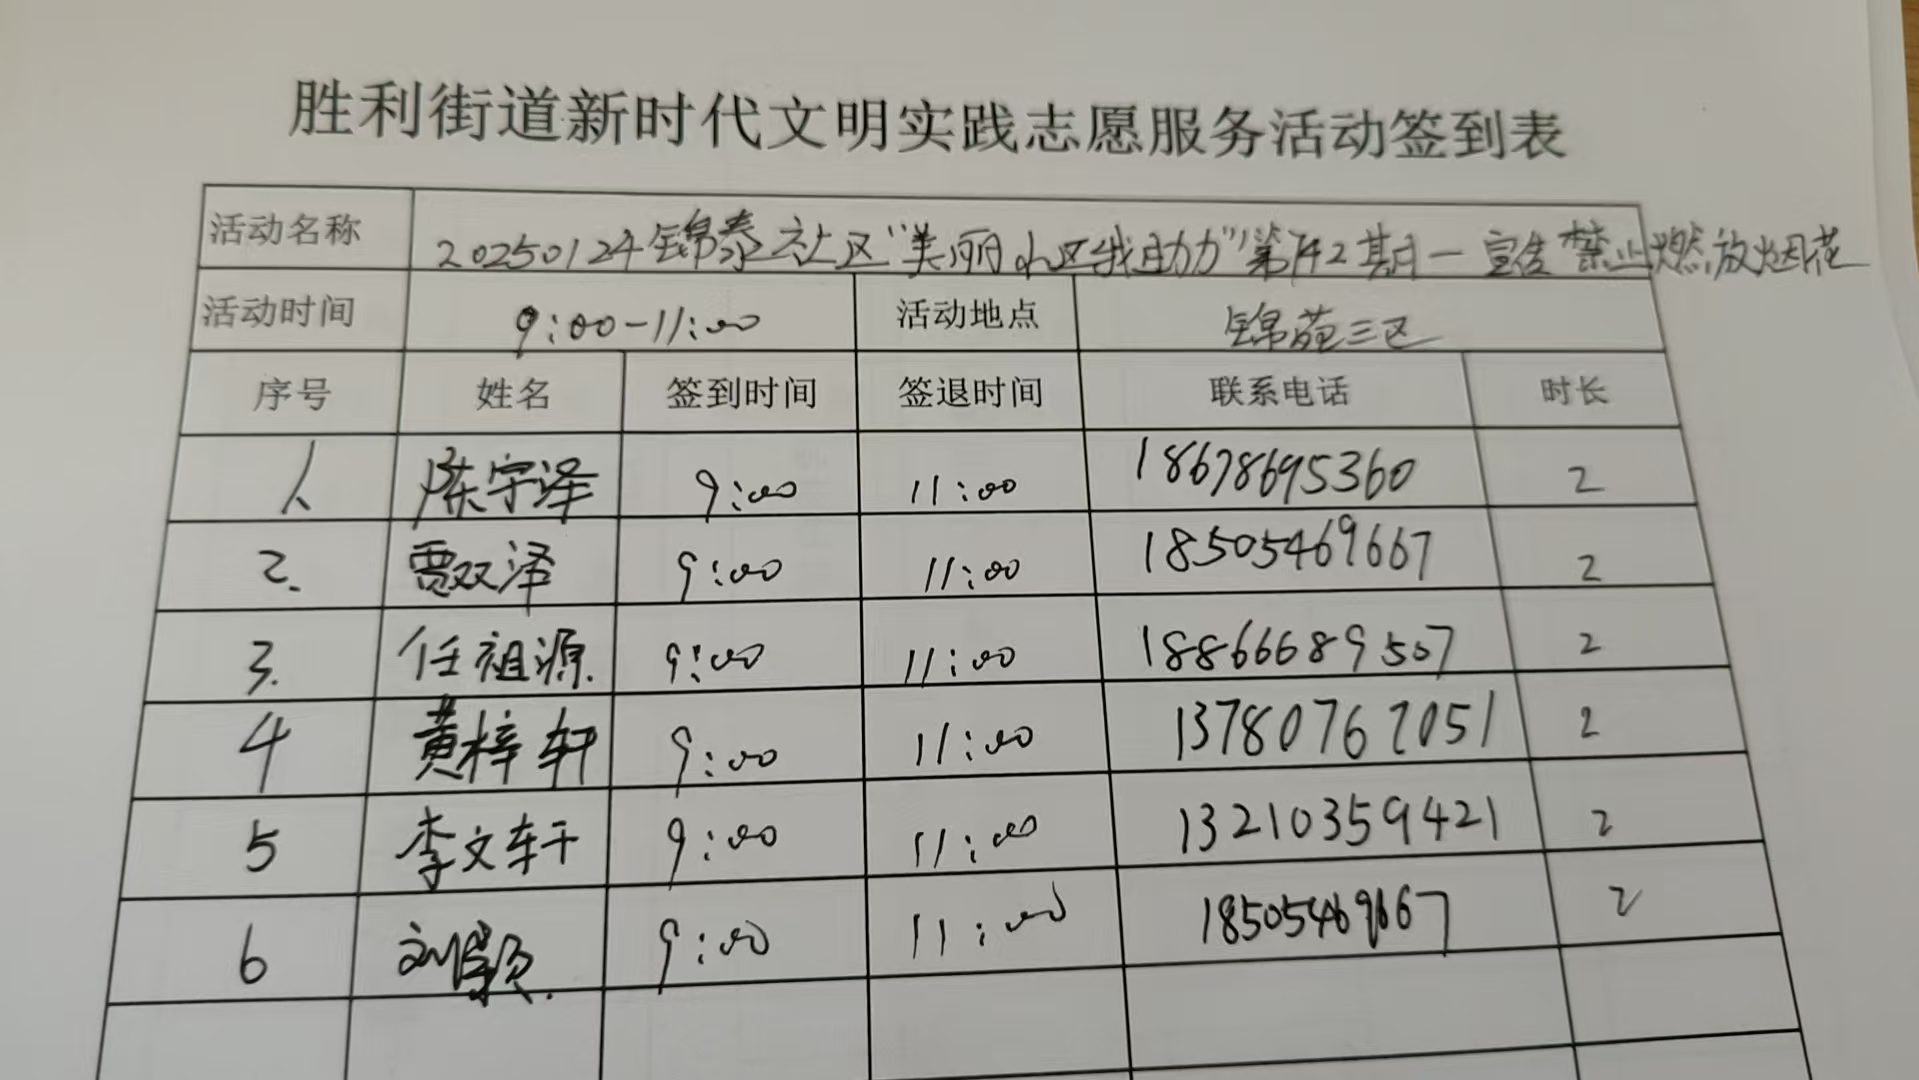 胜利街道新时代文明实践志愿服务活动签到表
活动名称 20250124锦泰社区“美丽小区我助力”第142期一宣传禁止燃放烟花
活动时间 9:00-11:00 活动地点 锦苑三区
序号 姓名 签到时间 签退时间 联系电话 时长
1. 陈宇泽 9:00 11:00 18678695360 2
2. 贾双泽 9:00 11:00 18505469667 2
3. 任祖源 9:00 11:00 18866689507 2
4 黄梓轩 9:00 11:00 13780767051 2
5 李文轩 9:00 11:00 13210359421 2
6 刘 9:00 11:00 18505469667 2